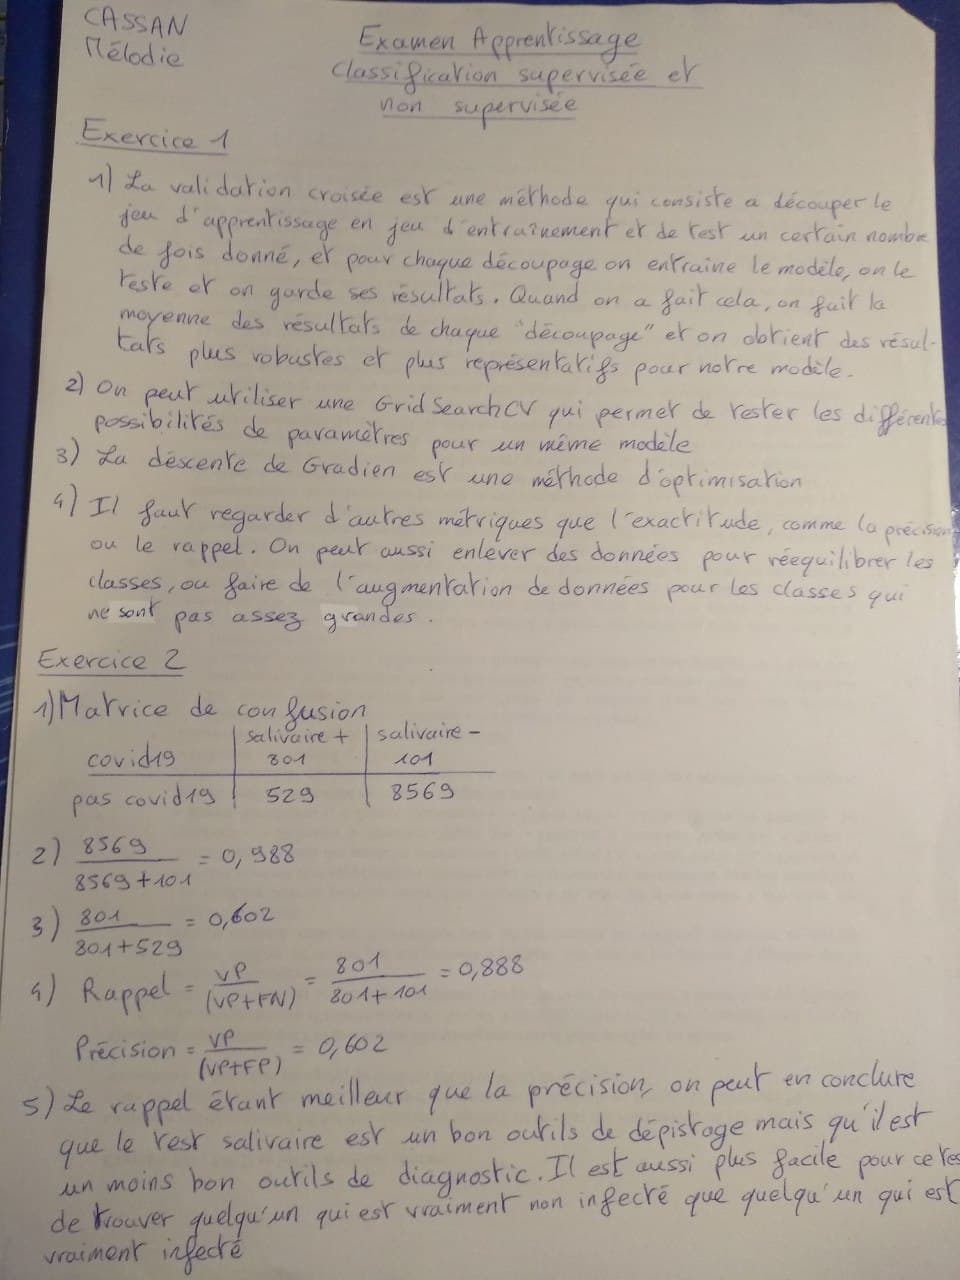 CASSAN
Mélodie
Examen Apprentissage
Classification supervisée et
non supervisée
Exercice 1
1) La validation croisée est une méthode qui consiste a découper le
jeu d'apprentissage en jeu d'entraînement et de test un certain nombre
de fois donné, et pour chaque découpage on entraine le modèle, on le
teste et on garde ses résultats. Quand on a fait cela, on fait la
moyenne des résultats de chaque "découpage" et on obtient des résul-
tats plus robustes et plus représentatifs pour notre modèle.
2) On peut utiliser une GridSearchCV qui permet de tester les différentes
possibilités de paramètres pour un même modèle
3) La déscente de Gradien est une méthode d'optimisation
4) Il faut regarder d'autres métriques que l'exactitude, comme la précision
ou le rappel. On peut aussi enlever des données pour rééquilibrer les
classes, ou faire de l'augmentation de données pour les classes qui
ne sont pas assez grandes.
Exercice 2
1) Matrice de confusion
salivaire + salivaire -
covid19 801 101
pas covid19 529 8569
2) 8569 / (8569+101) = 0,988
3) 801 / (801+529) = 0,602
4) Rappel = VP / (VP+FN) = 801 / (801+101) = 0,888
Précision = VP / (VP+FP) = 0,602
5) Le rappel étant meilleur que la précision, on peut en conclure
que le test salivaire est un bon outils de dépistage mais qu'il est
un moins bon outils de diagnostic. Il est aussi plus facile pour ce tes
de trouver quelqu'un qui est vraiment non infecté que quelqu'un qui est
vraiment infecté